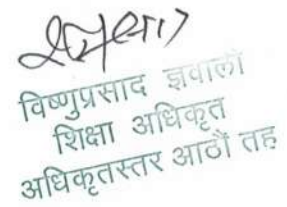 विष्णुप्रसाद ज्ञवाली
शिक्षा अधिकृत
अधिकृतस्तर आठौं तह